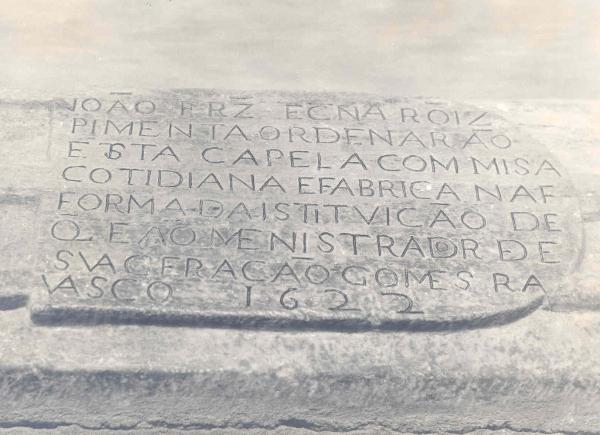 JOÃO FRZ ECNA ROIZ
PIMENTA ORDENARÃO
ESTA CAPELA COM MISA
COTIDIANA E FABRICA NA F
FORMA DA ISTITVIÇÃO DE
Q̃ E AO MENISTRADOR DE
SVA GERAÇÃO GOMES RA
VASCO 1622